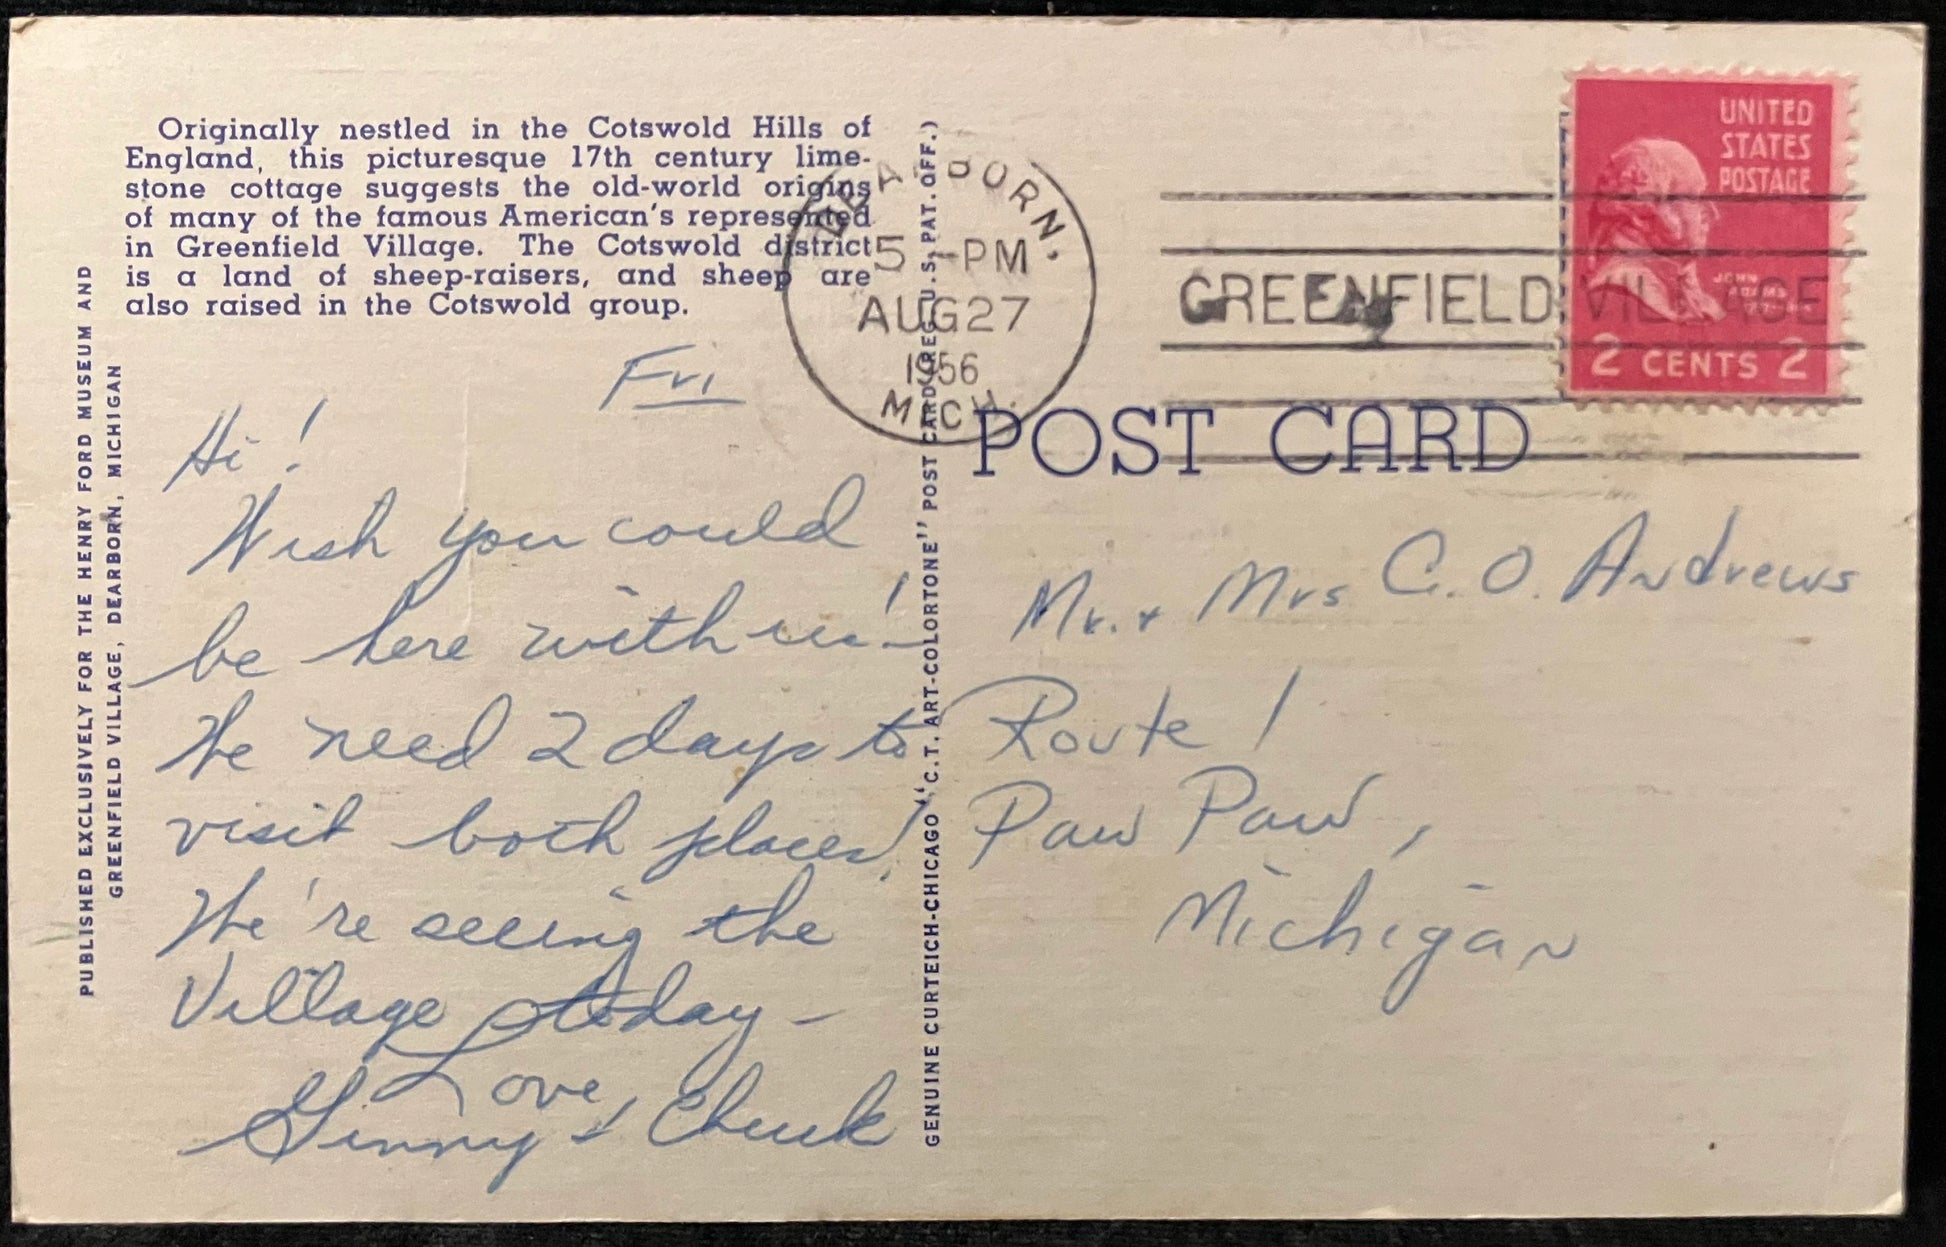 Originally nestled in the Cotswold Hills of
England, this picturesque 17th century lime-
stone cottage suggests the old-world origins
of many of the famous American's represented
in Greenfield Village. The Cotswold district
is a land of sheep-raisers, and sheep are
also raised in the Cotswold group.
PUBLISHED EXCLUSIVELY FOR THE HENRY FORD MUSEUM AND
GREENFIELD VILLAGE, DEARBORN, MICHIGAN
Fri
Hi!
Wish you could
be here with us! –
We need 2 days to
visit both places!
We're seeing the
Village today –
Love,
Ginny & Chuck
GENUINE CURTEICH-CHICAGO "C.T. ART-COLORTONE" POST CARD (REG. U.S. PAT. OFF.)
DEARBORN,
5 -PM
AUG 27
1956
MICH.
GREENFIELD VILLAGE
UNITED
STATES
POSTAGE
JOHN
ADAMS
2 CENTS 2
POST CARD
Mr. + Mrs C. O. Andrews
Route 1
Paw Paw,
Michigan